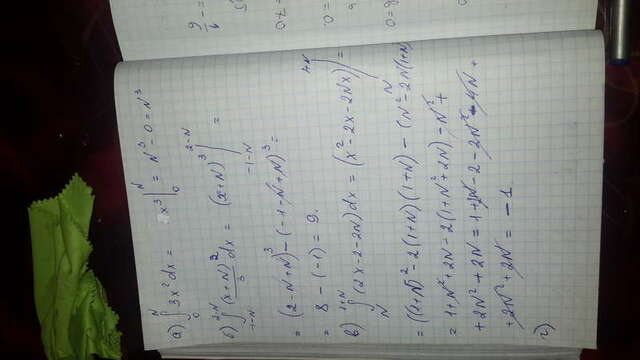 а) ∫₀ᴺ 3x² dx = x³ |₀ᴺ = N³ - 0 = N³
б) ∫₋₁₋ₙ²⁻ᴺ (x+N)²/3 dx = (x+N)³ |₋₁₋ₙ²⁻ᴺ =
= (2-N+N)³ - (-1-N+N)³ =
= 8 - (-1) = 9.
в) ∫ₙ¹⁺ᴺ (2x-2-2N) dx = (x²-2x-2Nx) |ₙ¹⁺ᴺ =
= ((1+N)² - 2(1+N)(1+N) - (N²-2N(1+N)
= 1+N²+2N - 2(1+N²+2N) - N² +
+ 2N² + 2N = 1+2N - 2 - 2N² - 4N +
+ 2N² + 2N = - 1
г)